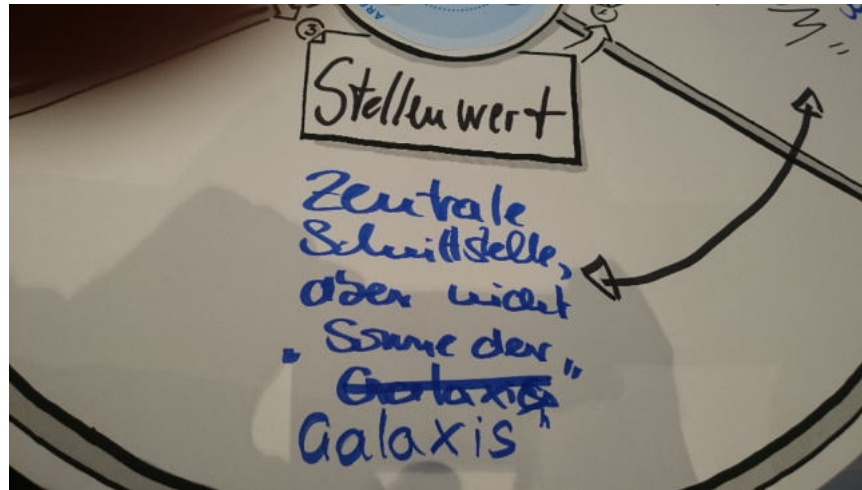 ARE
3
1
Stellenwert
Zentrale
Schnittstelle,
aber nicht
„Sonne der
Galaxis"
Galaxis"